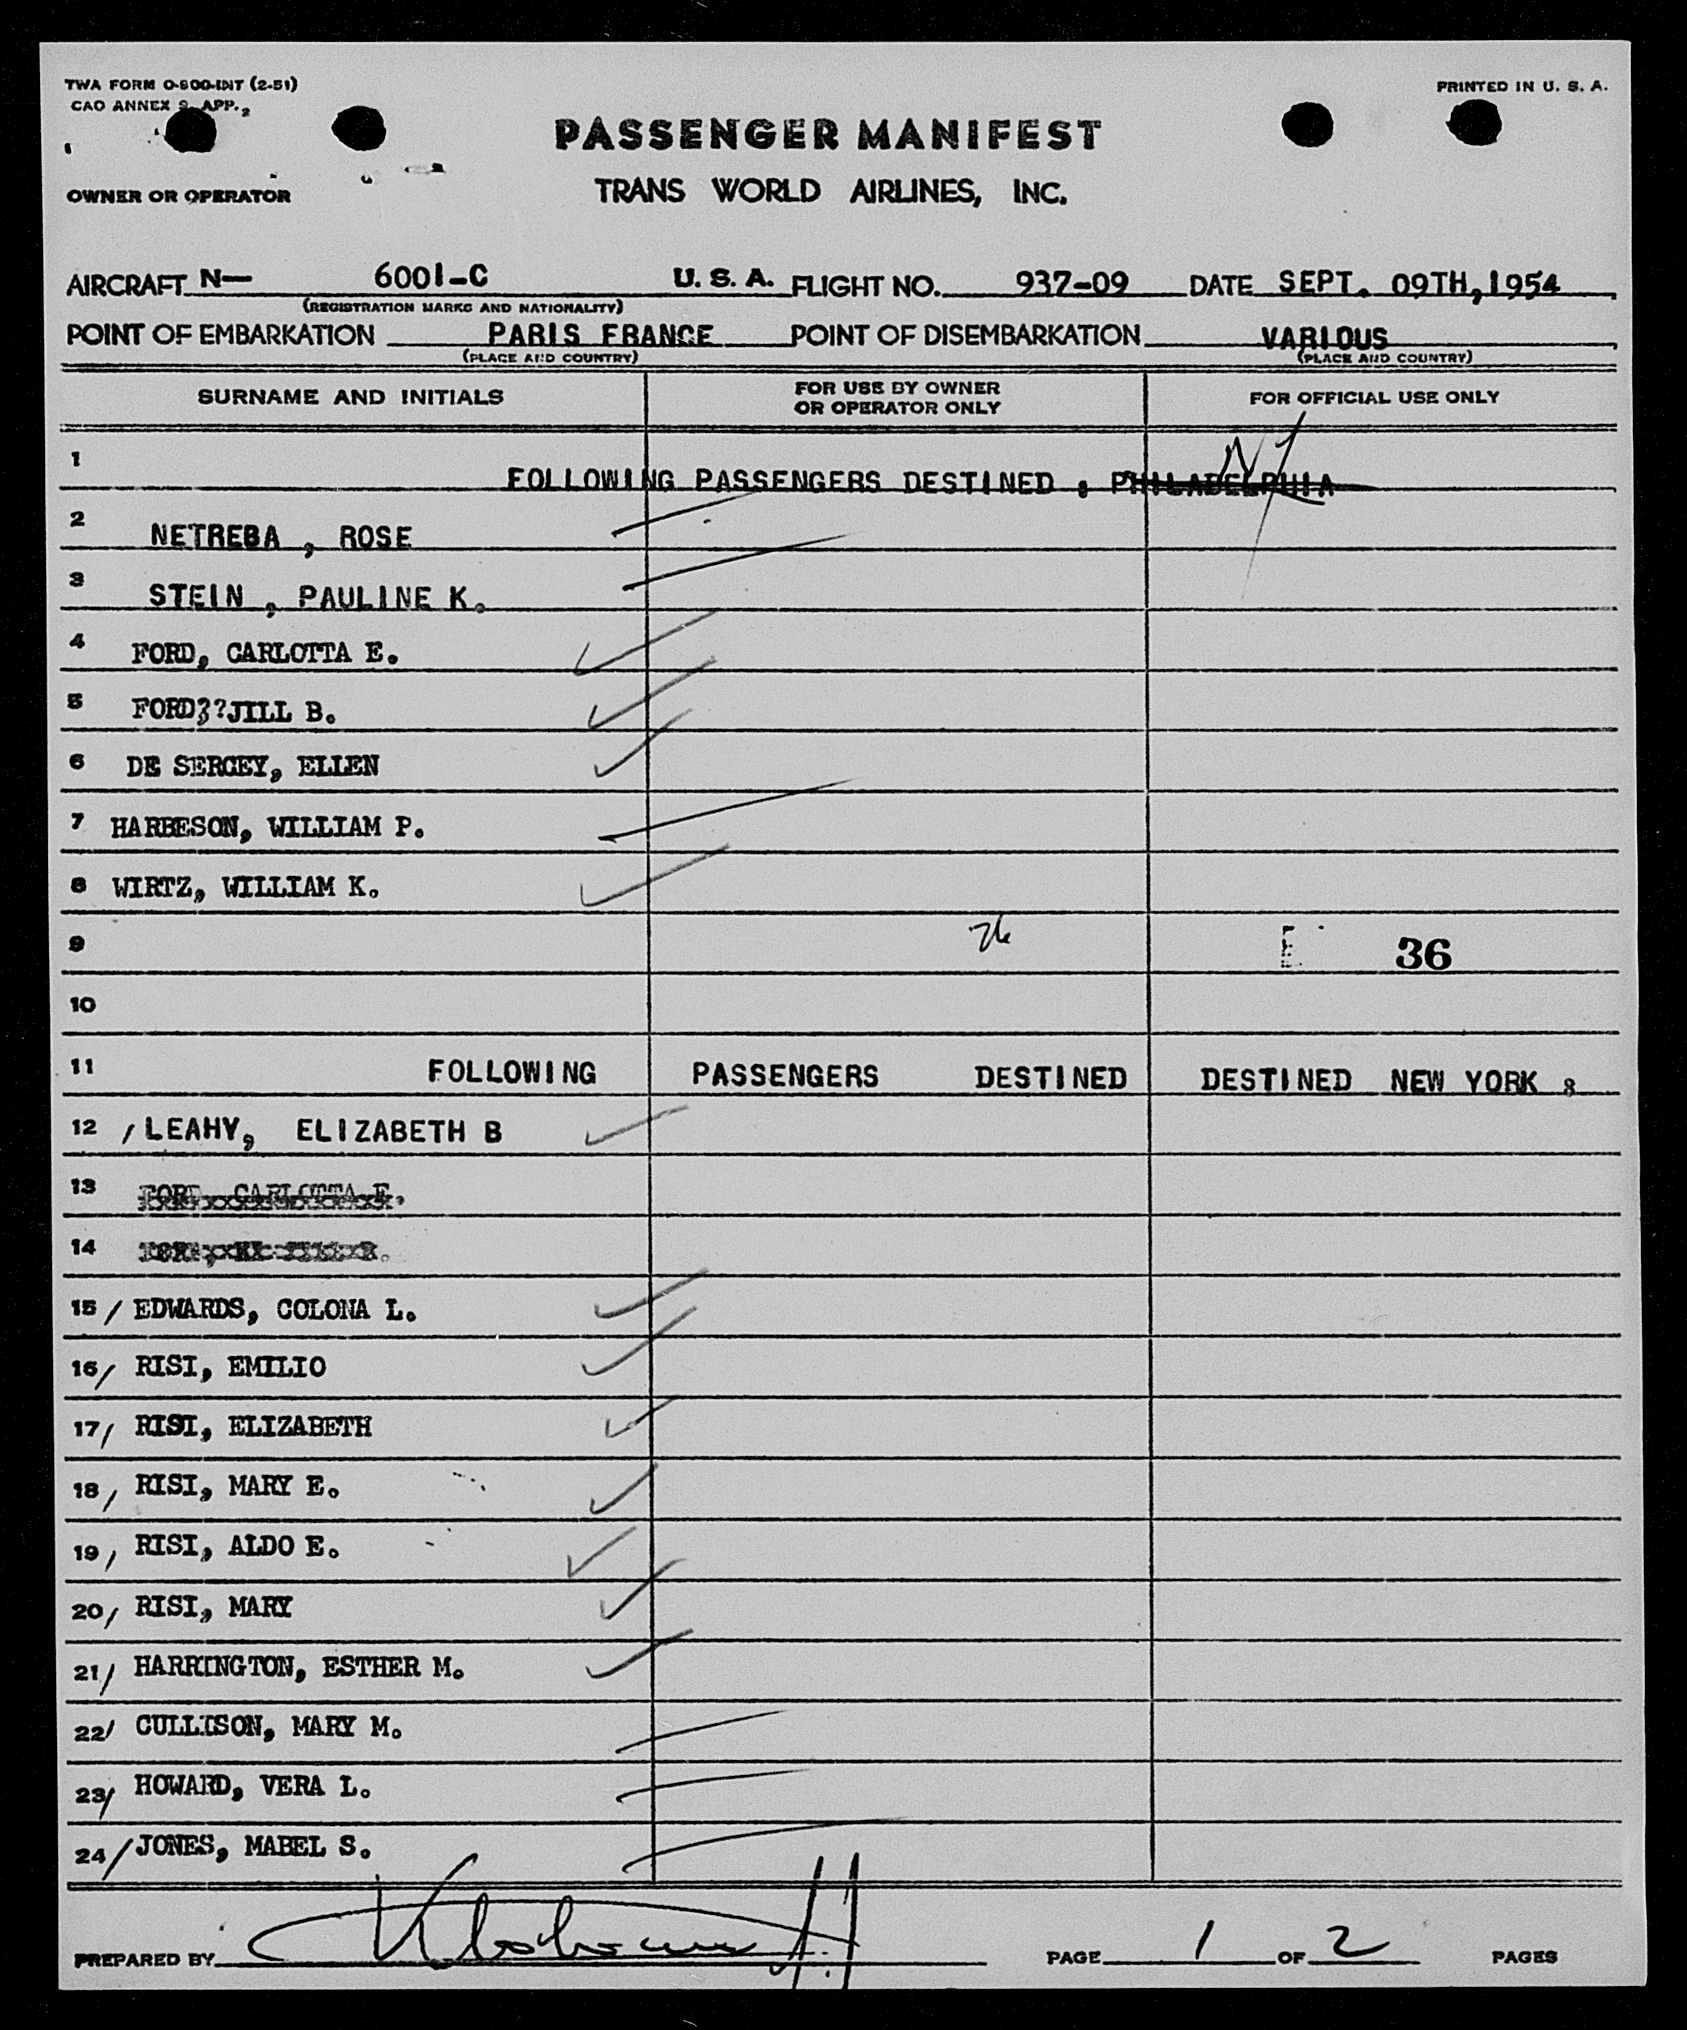 TWA FORM O-800-INT (2-51)
PRINTED IN U. S. A.
CAO ANNEX 9, APP. 2
PASSENGER MANIFEST
OWNER OR OPERATOR
TRANS WORLD AIRLINES, INC.
AIRCRAFT N— 6001-C U. S. A. FLIGHT NO. 937-09 DATE SEPT. 09TH, 1954
(REGISTRATION MARKS AND NATIONALITY)
POINT OF EMBARKATION PARIS FRANCE POINT OF DISEMBARKATION VARIOUS
(PLACE AND COUNTRY) (PLACE AND COUNTRY)
SURNAME AND INITIALS FOR USE BY OWNER OR OPERATOR ONLY FOR OFFICIAL USE ONLY
NY
1 FOLLOWING PASSENGERS DESTINED : PHILADELPHIA
2 NETREBA , ROSE
3 STEIN , PAULINE K.
4 FORD, CARLOTTA E.
5 FORD??JILL B.
6 DE SERGEY, ELLEN
7 HARBESON, WILLIAM P.
8 WIRTZ, WILLIAM K.
9 26 36
10
11 FOLLOWING PASSENGERS DESTINED DESTINED NEW YORK :
12 / LEAHY, ELIZABETH B
13 FORD, CARLOTTA E.
14
15 / EDWARDS, COLONA L.
16 / RISI, EMILIO
17 / RISI, ELIZABETH
18 / RISI, MARY E.
19 / RISI, ALDO E.
20 / RISI, MARY
21 / HARRINGTON, ESTHER M.
22 / CULLISON, MARY M.
23 / HOWARD, VERA L.
24 / JONES, MABEL S.
PREPARED BY PAGE 1 OF 2 PAGES